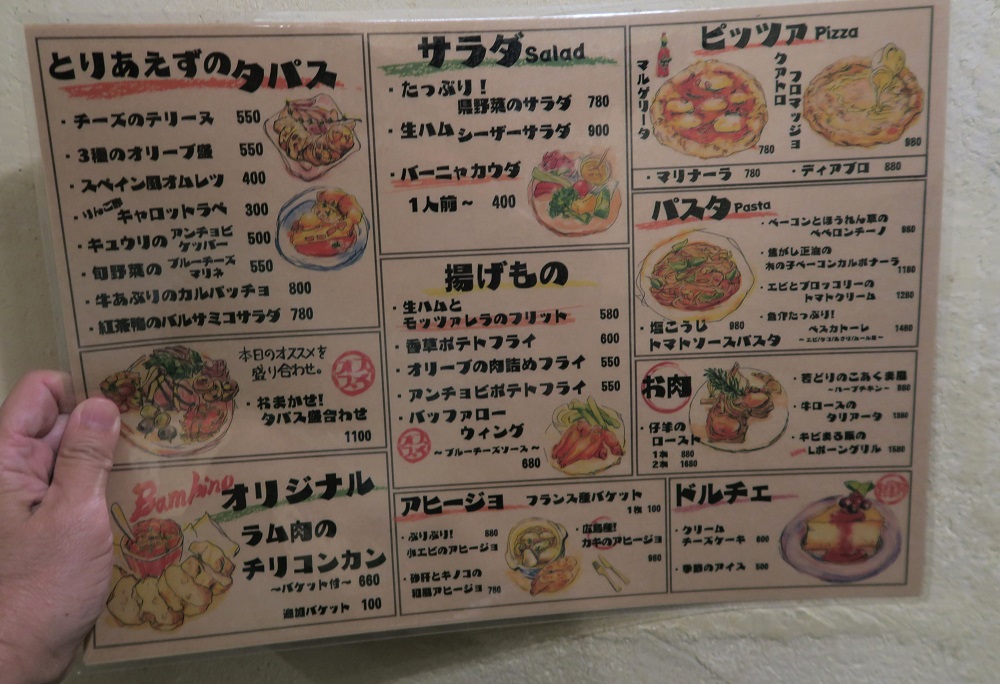 とりあえずのタパス
・チーズのテリーヌ 550
・3種のオリーブ盛 550
・スペイン風オムレツ 400
・りんご酢 キャロットラペ 300
・キュウリのアンチョビケッパー 500
・旬野菜のブルーチーズマリネ 550
・牛あぶりのカルパッチョ 800
・紅茶鴨のバルサミコサラダ 780
本日のオススメを
盛り合わせ。
オススメ
・おまかせ!
タパス盛合わせ
1100
Bambino オリジナル
ラム肉の
チリコンカン
〜バケット付〜 660
追加バケット 100
サラダ Salad
・たっぷり!
県野菜のサラダ 780
・生ハムシーザーサラダ 900
・バーニャカウダ
1人前〜 400
揚げもの
・生ハムと
モッツァレラのフリット 580
・香草ポテトフライ 600
・オリーブの肉詰めフライ 550
・アンチョビポテトフライ 550
・バッファロー
ウィング
〜ブルーチーズソース〜
680
アヒージョ フランス産バケット
1枚 100
・ぷりぷり! 880
小エビのアヒージョ
・砂肝とキノコの
和風アヒージョ 780
・広島産!
カキのアヒージョ
980
ピッツァ Pizza
マルゲリータ
780
クアトロ
フロマッジョ
980
・マリナーラ 780
・ディアブロ 880
パスタ Pasta
・ベーコンとほうれん草の
ペペロンチーノ
・焦がし正油の
木の子ベーコンカルボナーラ
1180
・エビとブロッコリーの
トマトクリーム 1280
・魚介たっぷり!
ペスカトーレ 1480
・塩こうじ 980
トマトソースパスタ
お肉
・仔羊の
ロースト
1本 880
2本 1680
・若どりのこあくま風
〜ハーブチキン〜 980
・牛ロースの
タリアータ
・キビまる豚の
Lボーングリル 1580
ドルチェ
・クリーム
チーズケーキ 600
・季節のアイス 500